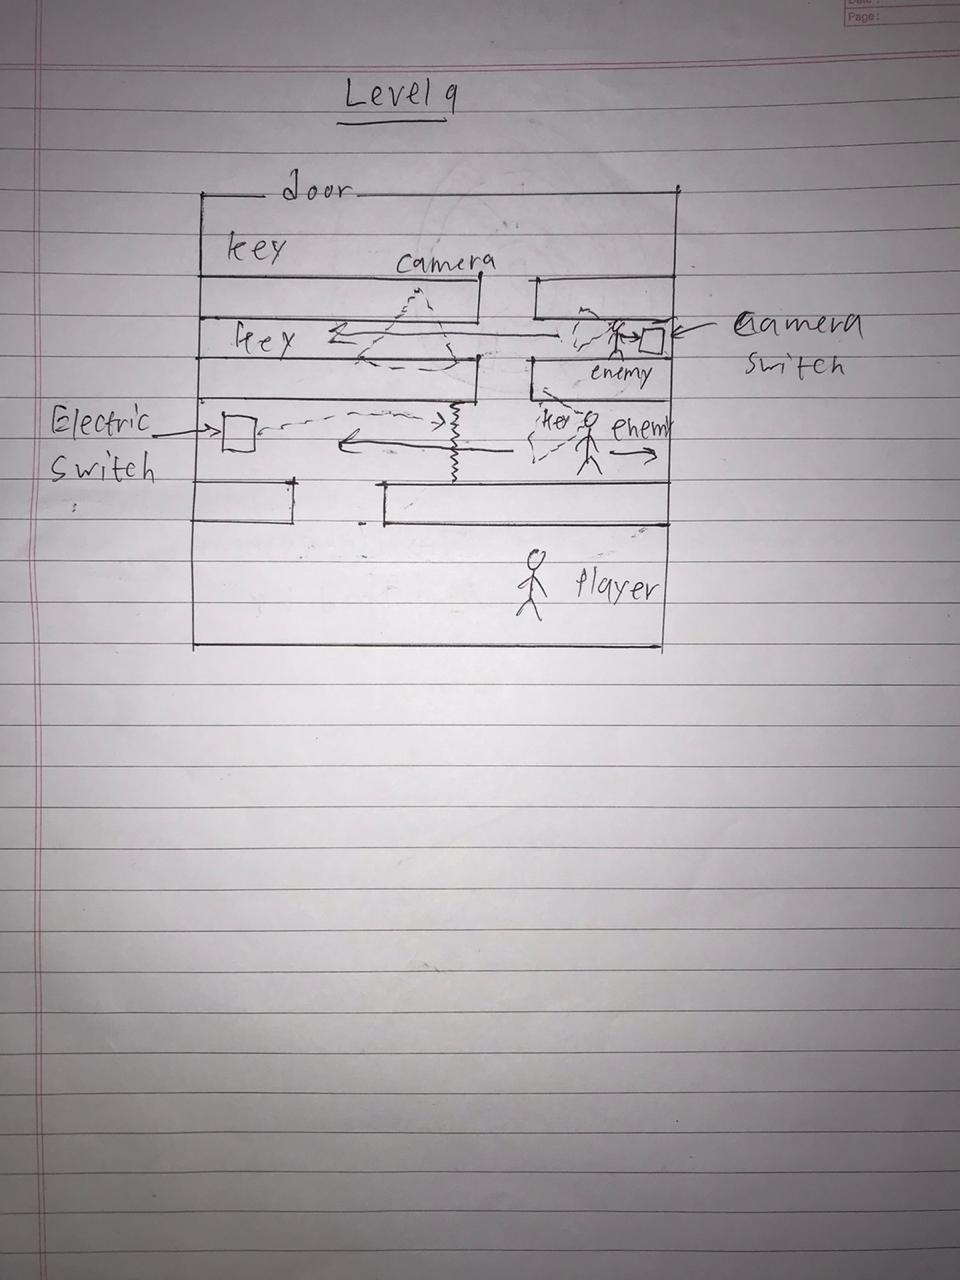 Page:
Level 9
door
key
camera
key
Camera
Switch
enemy
Electric
Switch
key
enemy
Player